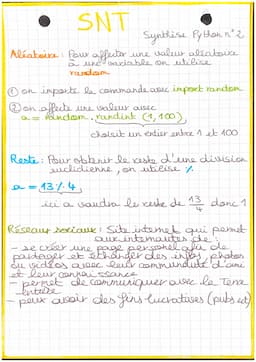 SNT
Synthèse Python n°2
Aléatoire : Pour affecter une valeur aléatoire
à une variable on utilise
random
① on importe la commande avec import random
② on affecte une valeur avec
a = random.randint (1,100)
choisit un entier entre 1 et 100
Reste : Pour obtenir le reste d'une division
euclidienne, on utilise %
a = 13 % 4
ici a vaudra le reste de 13/4 donc 1
Réseaux sociaux : Site internet qui permet
aux internautes de :
- se créer une page personnel afin de
partager et échanger des infos, photos
ou vidéos avec leur communauté d'ami
et leur connaissance
- permet de communiquer avec la Terre
entière
- peux avoir des fins lucratives (pubs ect)